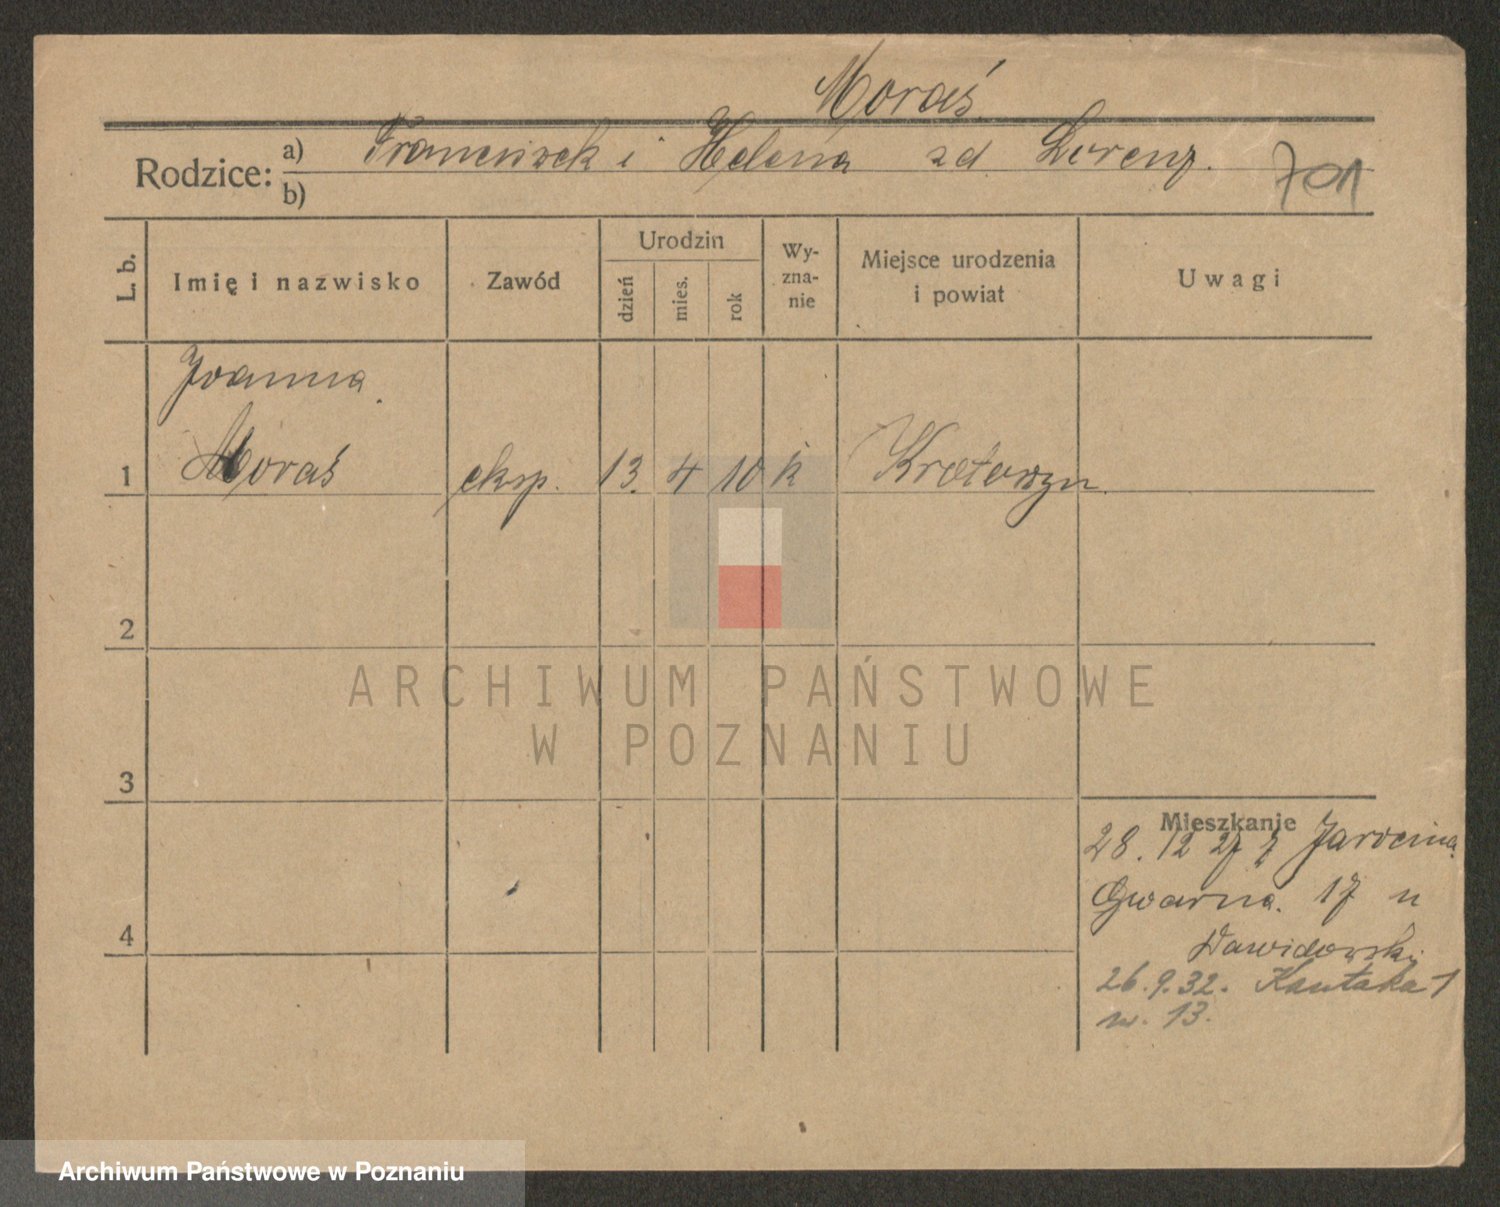 Moraś
Rodzice: a) Franciszek i Helena zd Lorenz. 701
b)
L. b. Imię i nazwisko Zawód Urodzin dzień mies. rok Wy-zna-nie Miejsce urodzenia i powiat Uwagi
Joanna
1 Moraś eksp. 13. 4 10 k Krotoszyn
2
ARCHIWUM PAŃSTWOWE
W POZNANIU
3
Mieszkanie
28. 12 27 z Jarocina
Gwarna. 17 u
4 Dawidowski
26.9.32. Kantaka 1
w. 13.
Archiwum Państwowe w Poznaniu